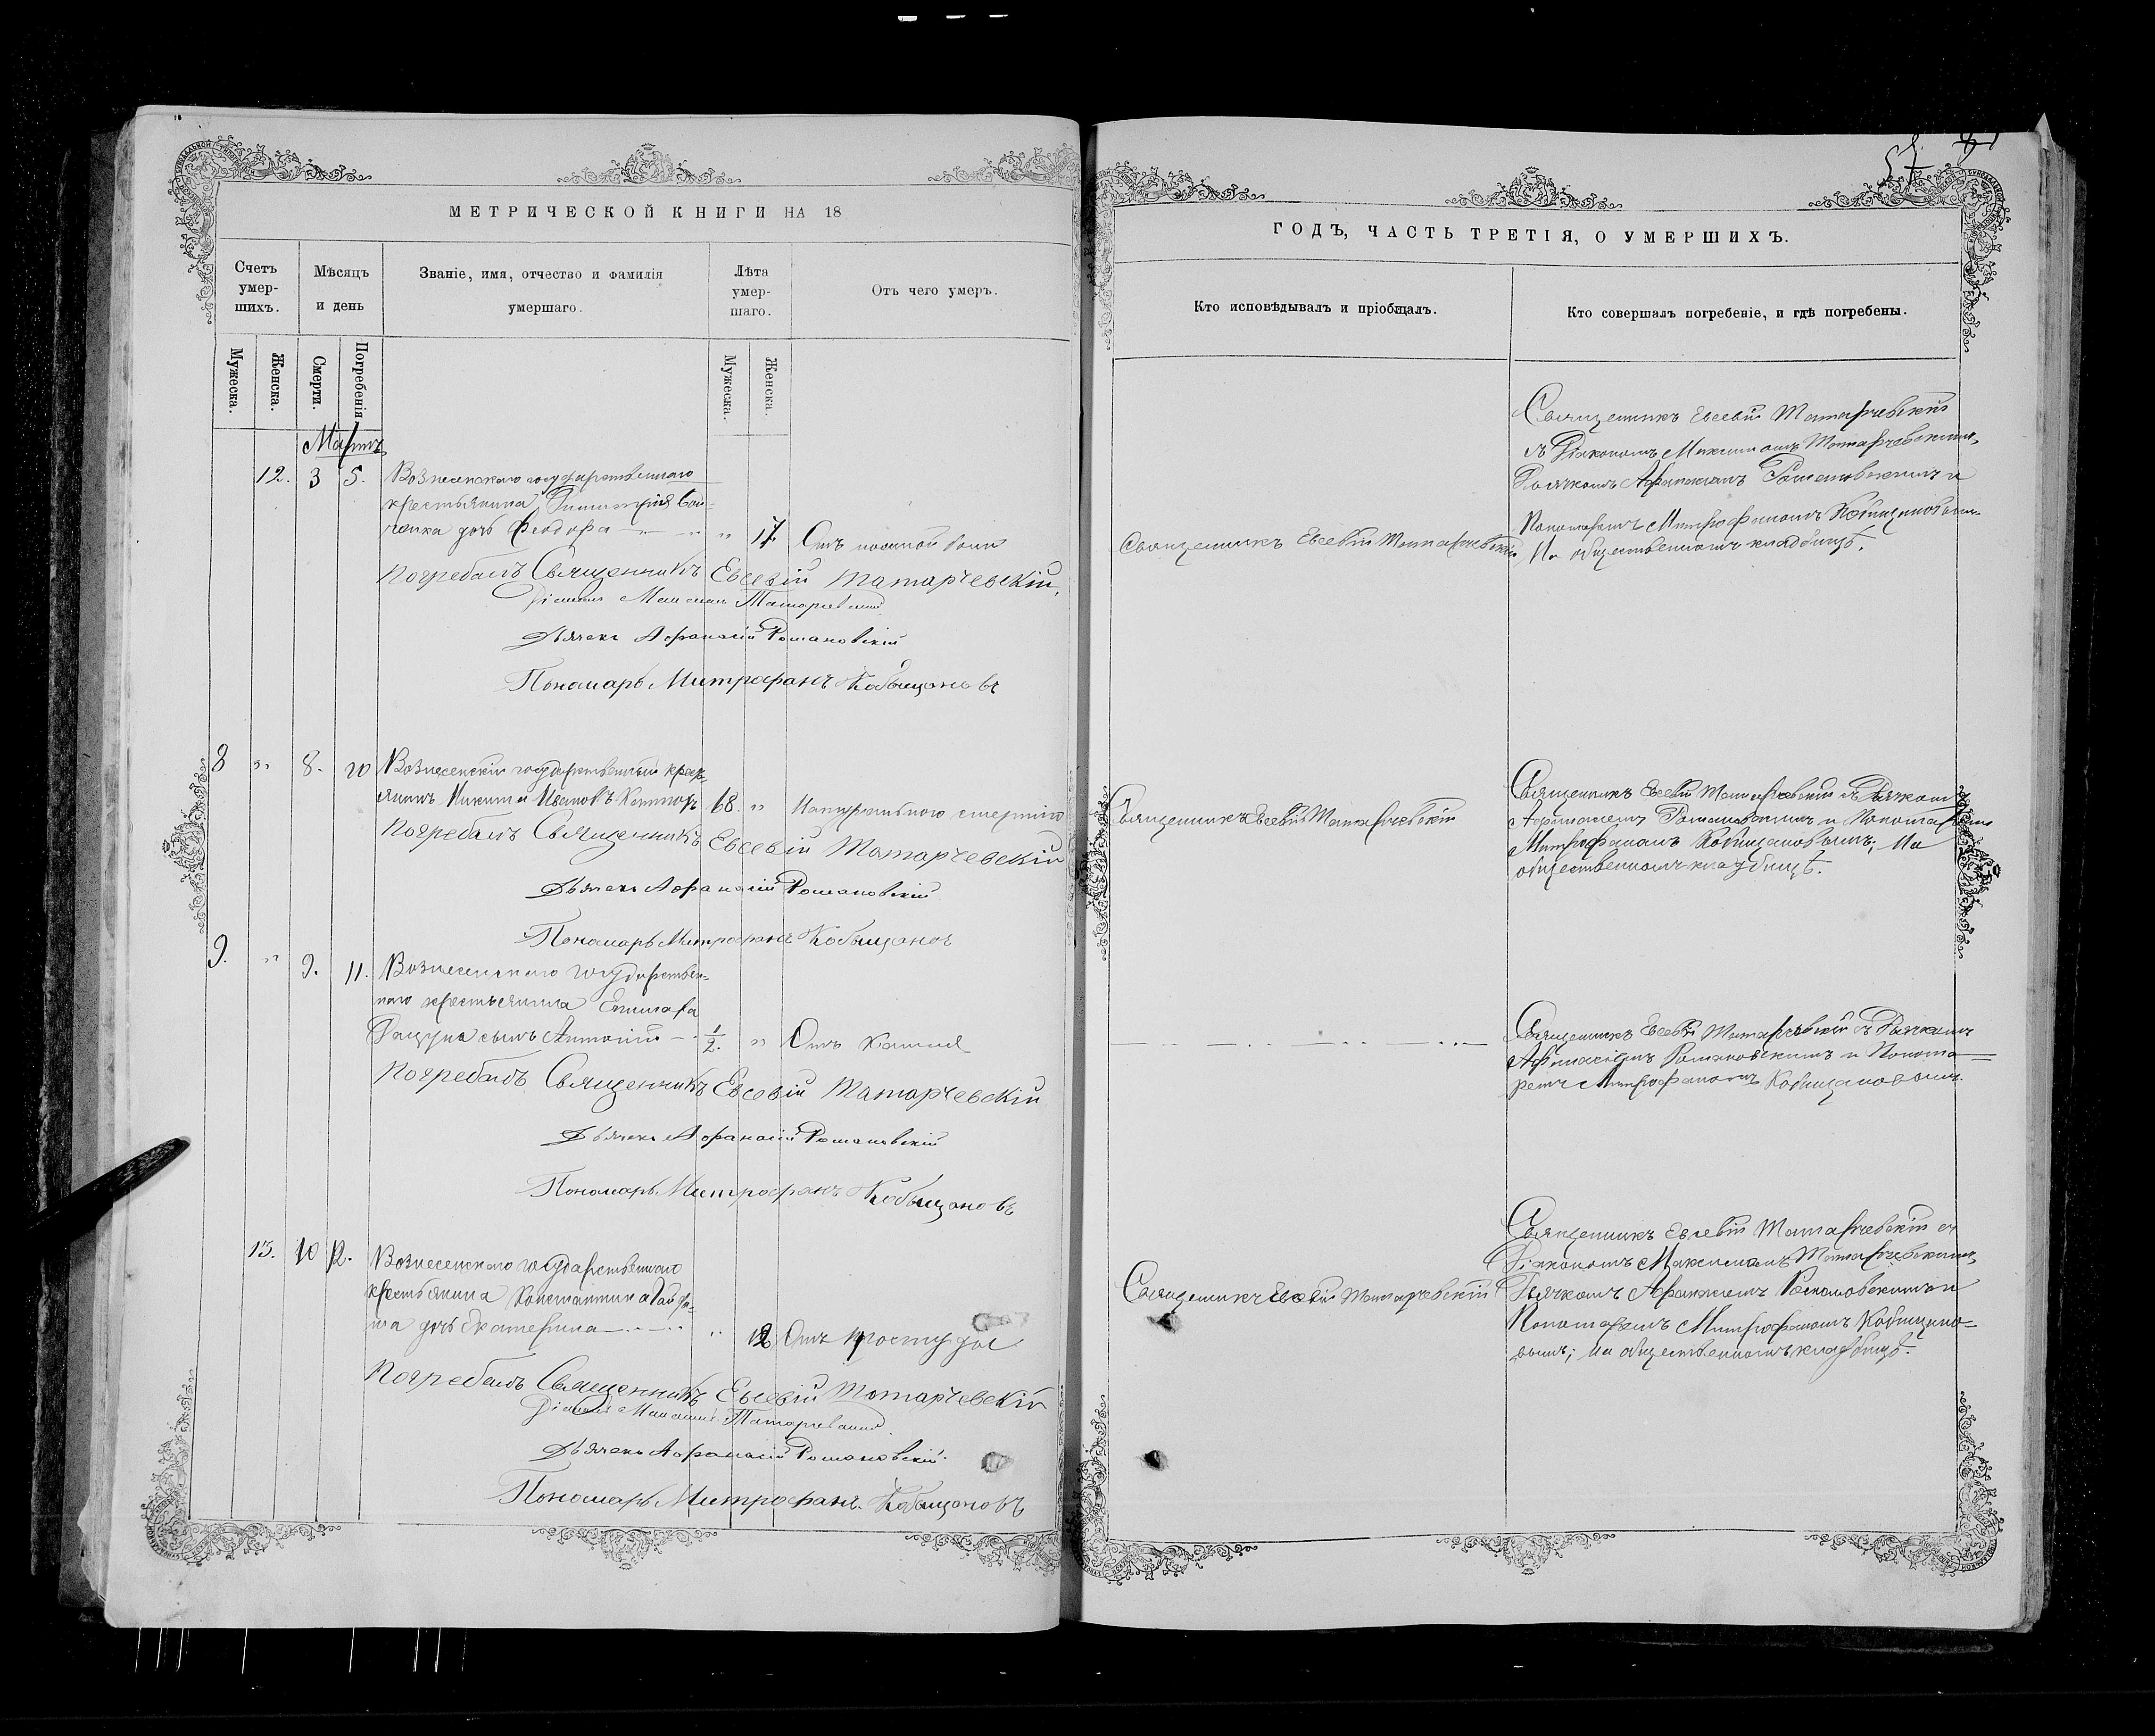 МЕТРИЧЕСКОЙ КНИГИ НА 18
Счетъ умер-шихъ.
Мѣсяцъ и день
Званіе, имя, отчество и фамилія умершаго.
Лѣта умер-шаго.
Отъ чего умеръ.
Мужеска.
Женска.
Смерти.
Погребенія
Мужеска.
Женска.
Мартъ
12. 3 5. Вознесенскаго государственнаго
крестьянина
дочь Феодора " 17. Отъ
Погребалъ Священникъ Евсевій Татарчевскій,
Діаконъ Татарчевскій
Дьячекъ Афанасій Романовскій
Пономарь Митрофанъ Кобыщановъ
8 " 8. 10 Вознесенскій государственный крест-
янинъ Никита Ивановъ 68. " Натуральною смертію
Погребалъ Священникъ Евсевій Татарчевскій
Дьячекъ Афанасій Романовскій
Пономарь Митрофанъ Кобыщановъ
9. " 9. 11. Вознесенскаго государствен-
наго крестьянина
сынъ Антоній 1/2. " Отъ Кашля
Погребалъ Священникъ Евсевій Татарчевскій
Дьячекъ Афанасій Романовскій
Пономарь Митрофанъ Кобыщановъ
13. 10 12. Вознесенскаго государственнаго
крестьянина Константина
дочь Екатерина " 12 Отъ простуды
Погребалъ Священникъ Евсевій Татарчевскій
Діаконъ Татарчевскій
Дьячекъ Афанасій Романовскій
Пономарь Митрофанъ Кобыщановъ
57
ГОДЪ, ЧАСТЬ ТРЕТІЯ, О УМЕРШИХЪ.
Кто исповѣдывалъ и пріобщалъ.
Кто совершалъ погребеніе, и гдѣ погребены.
Священникъ Евсевій Татарчевскій
Священникъ Евсевій Татарчевскій
съ Діакономъ Максимомъ Татарчевскимъ,
Дьячкомъ Афанасіемъ Романовскимъ и
Пономаремъ Митрофаномъ Кобыщановымъ
На общественномъ кладбищѣ.
Священникъ Евсевій Татарчевскій
Священникъ Евсевій Татарчевскій съ Дьячкомъ
Афанасіемъ Романовскимъ и Пономаремъ
Митрофаномъ Кобыщановымъ; На
общественномъ кладбищѣ.
Священникъ Евсевій Татарчевскій съ Дьячкомъ
Афанасіемъ Романовскимъ и Понома-
ремъ Митрофаномъ Кобыщановымъ.
Священникъ Евсевій Татарчевскій
Священникъ Евсевій Татарчевскій съ
Діакономъ Максимомъ Татарчевскимъ,
Дьячкомъ Афанасіемъ Романовскимъ и
Пономаремъ Митрофаномъ Кобыщано-
вымъ; На общественномъ кладбищѣ.